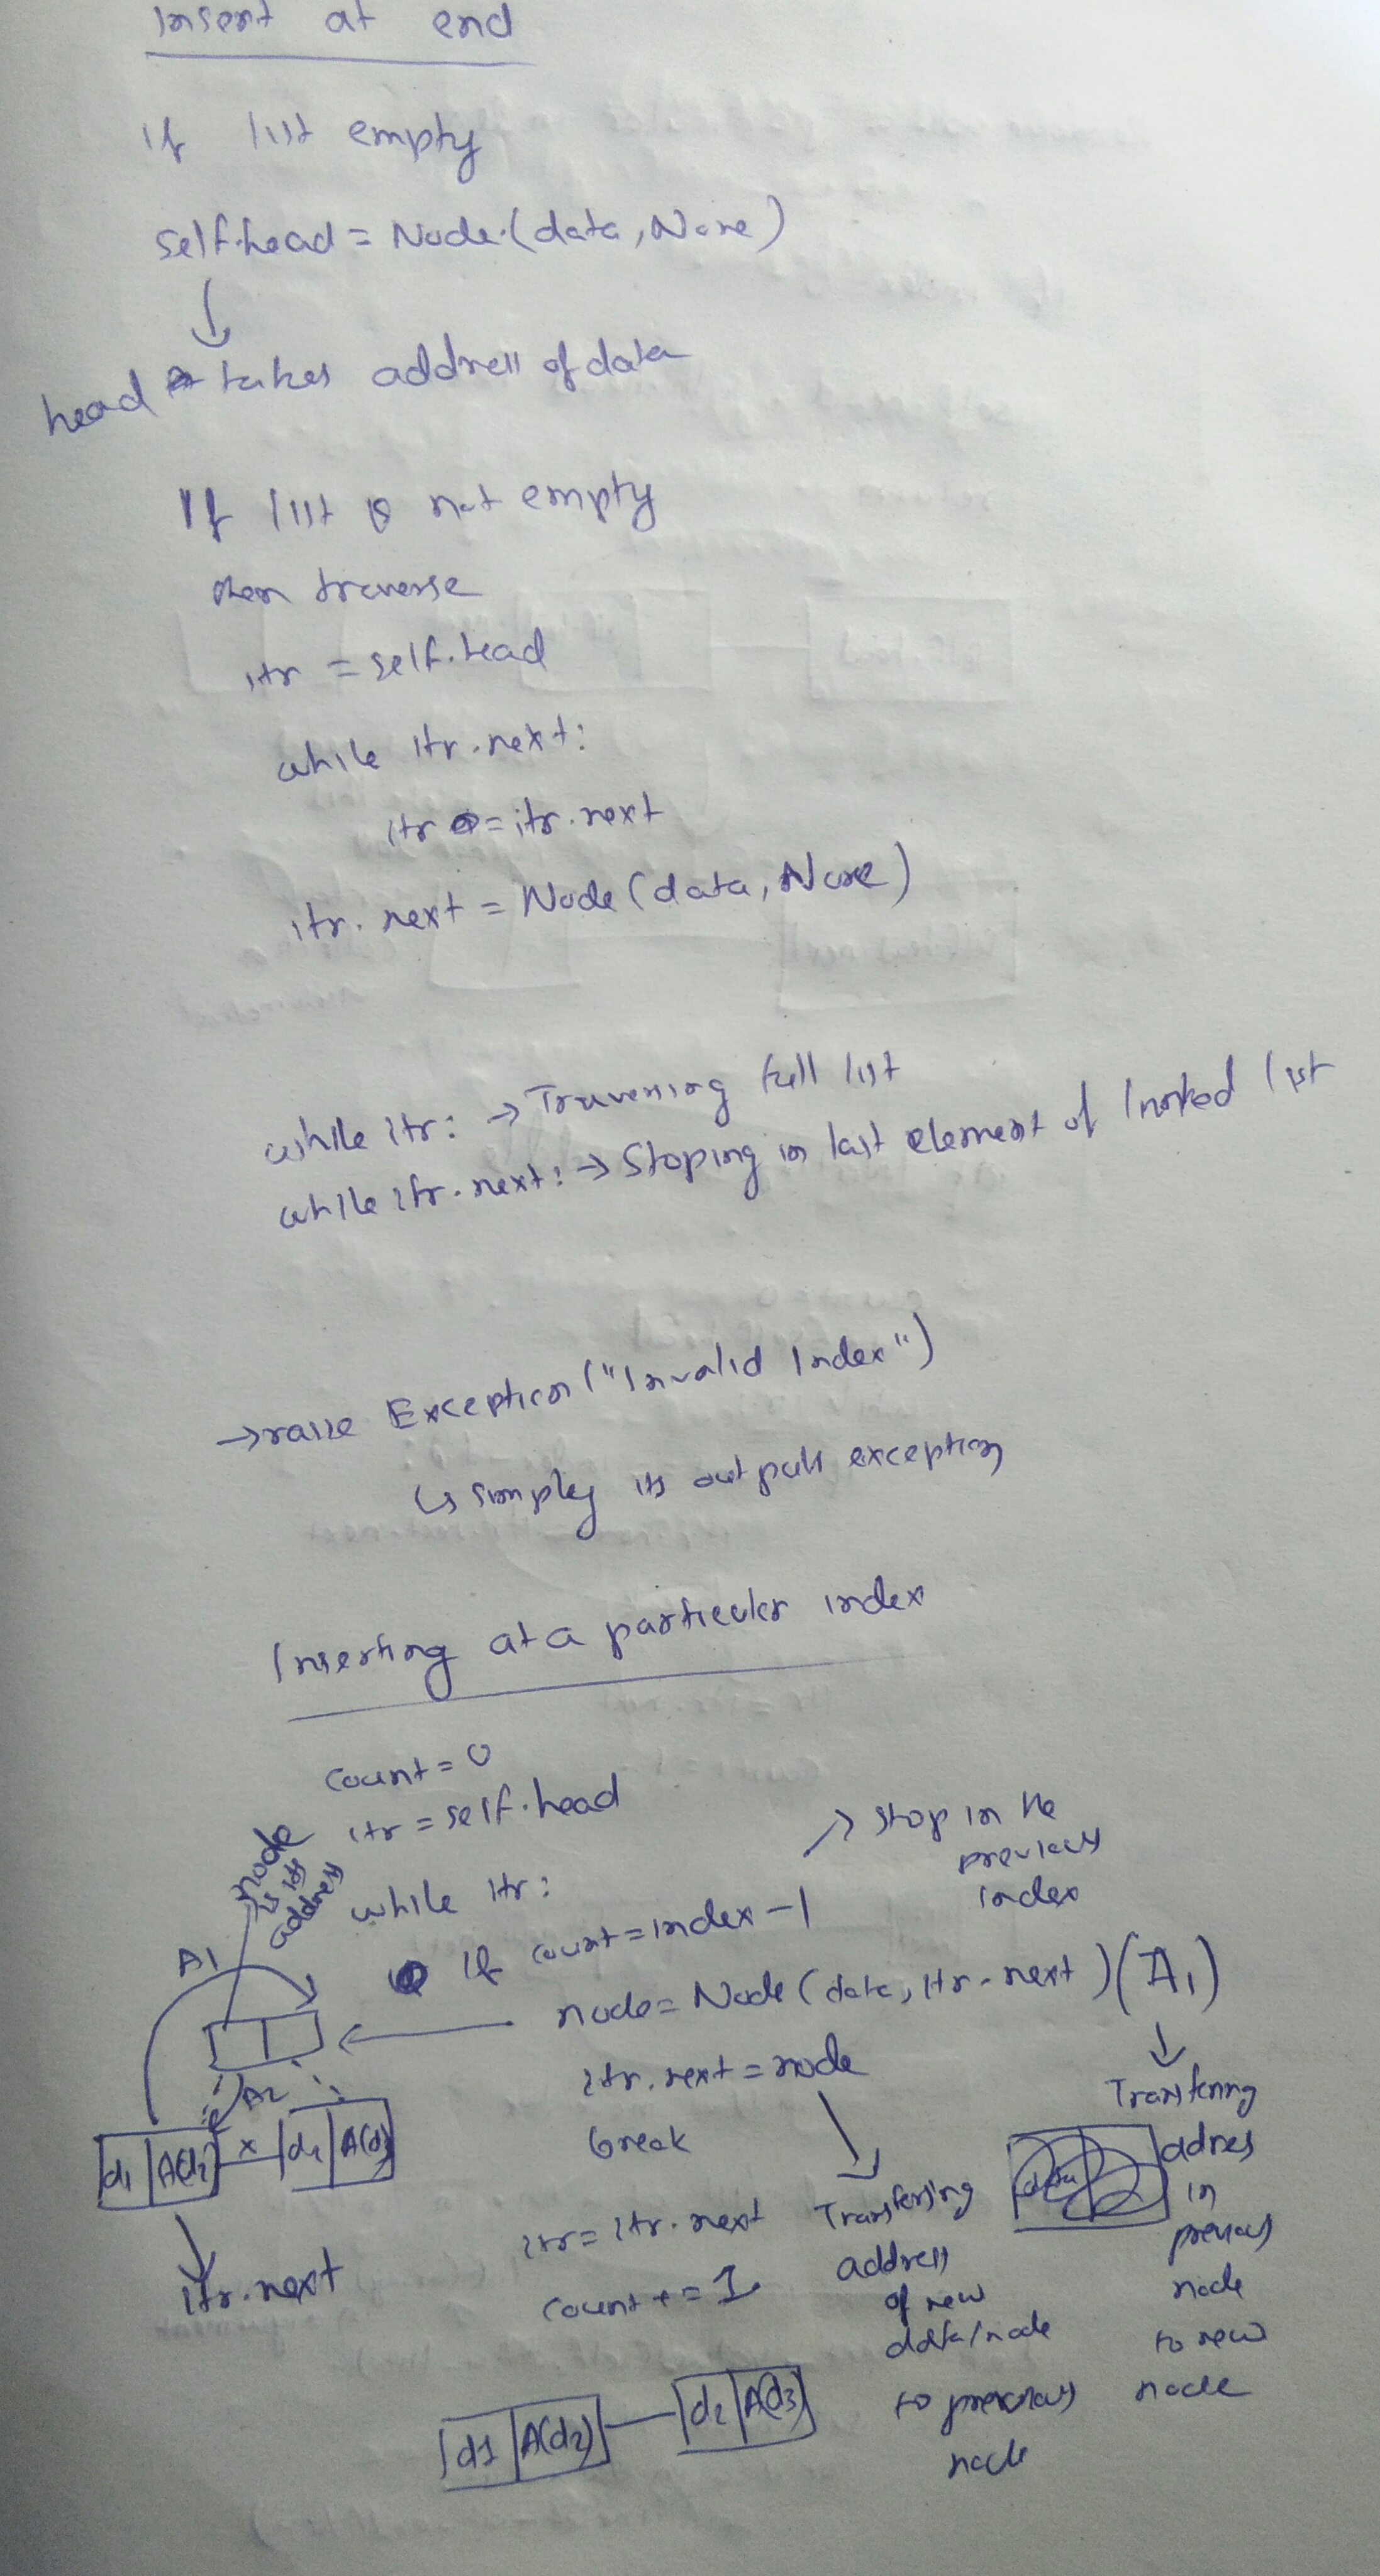 Insert at end
If list empty
self.head = Node(data, None)
head takes address of data
If list is not empty
then traverse
itr = self.head
while itr.next:
itr = itr.next
itr.next = Node(data, None)
while itr: → Traversing full list
while itr.next: → Stoping in last element of linked list
→ raise Exception("Invalid Index")
↳ simply its outputs exception
Inserting at a particular index
count = 0
itr = self.head
while itr:
→ stop in the
previous
index
If count = index - 1
node = Node(data, itr.next) (A1)
itr.next = node
break
itr = itr.next
count += 1
Transfering
adres
in
previous
node
to new
node
Transfering
address
of new
data/node
to previous
node
node
is its
address
A1
A2
d1 A(d2) x d2
itr.next
d1 A(d2) d2 A(d3)